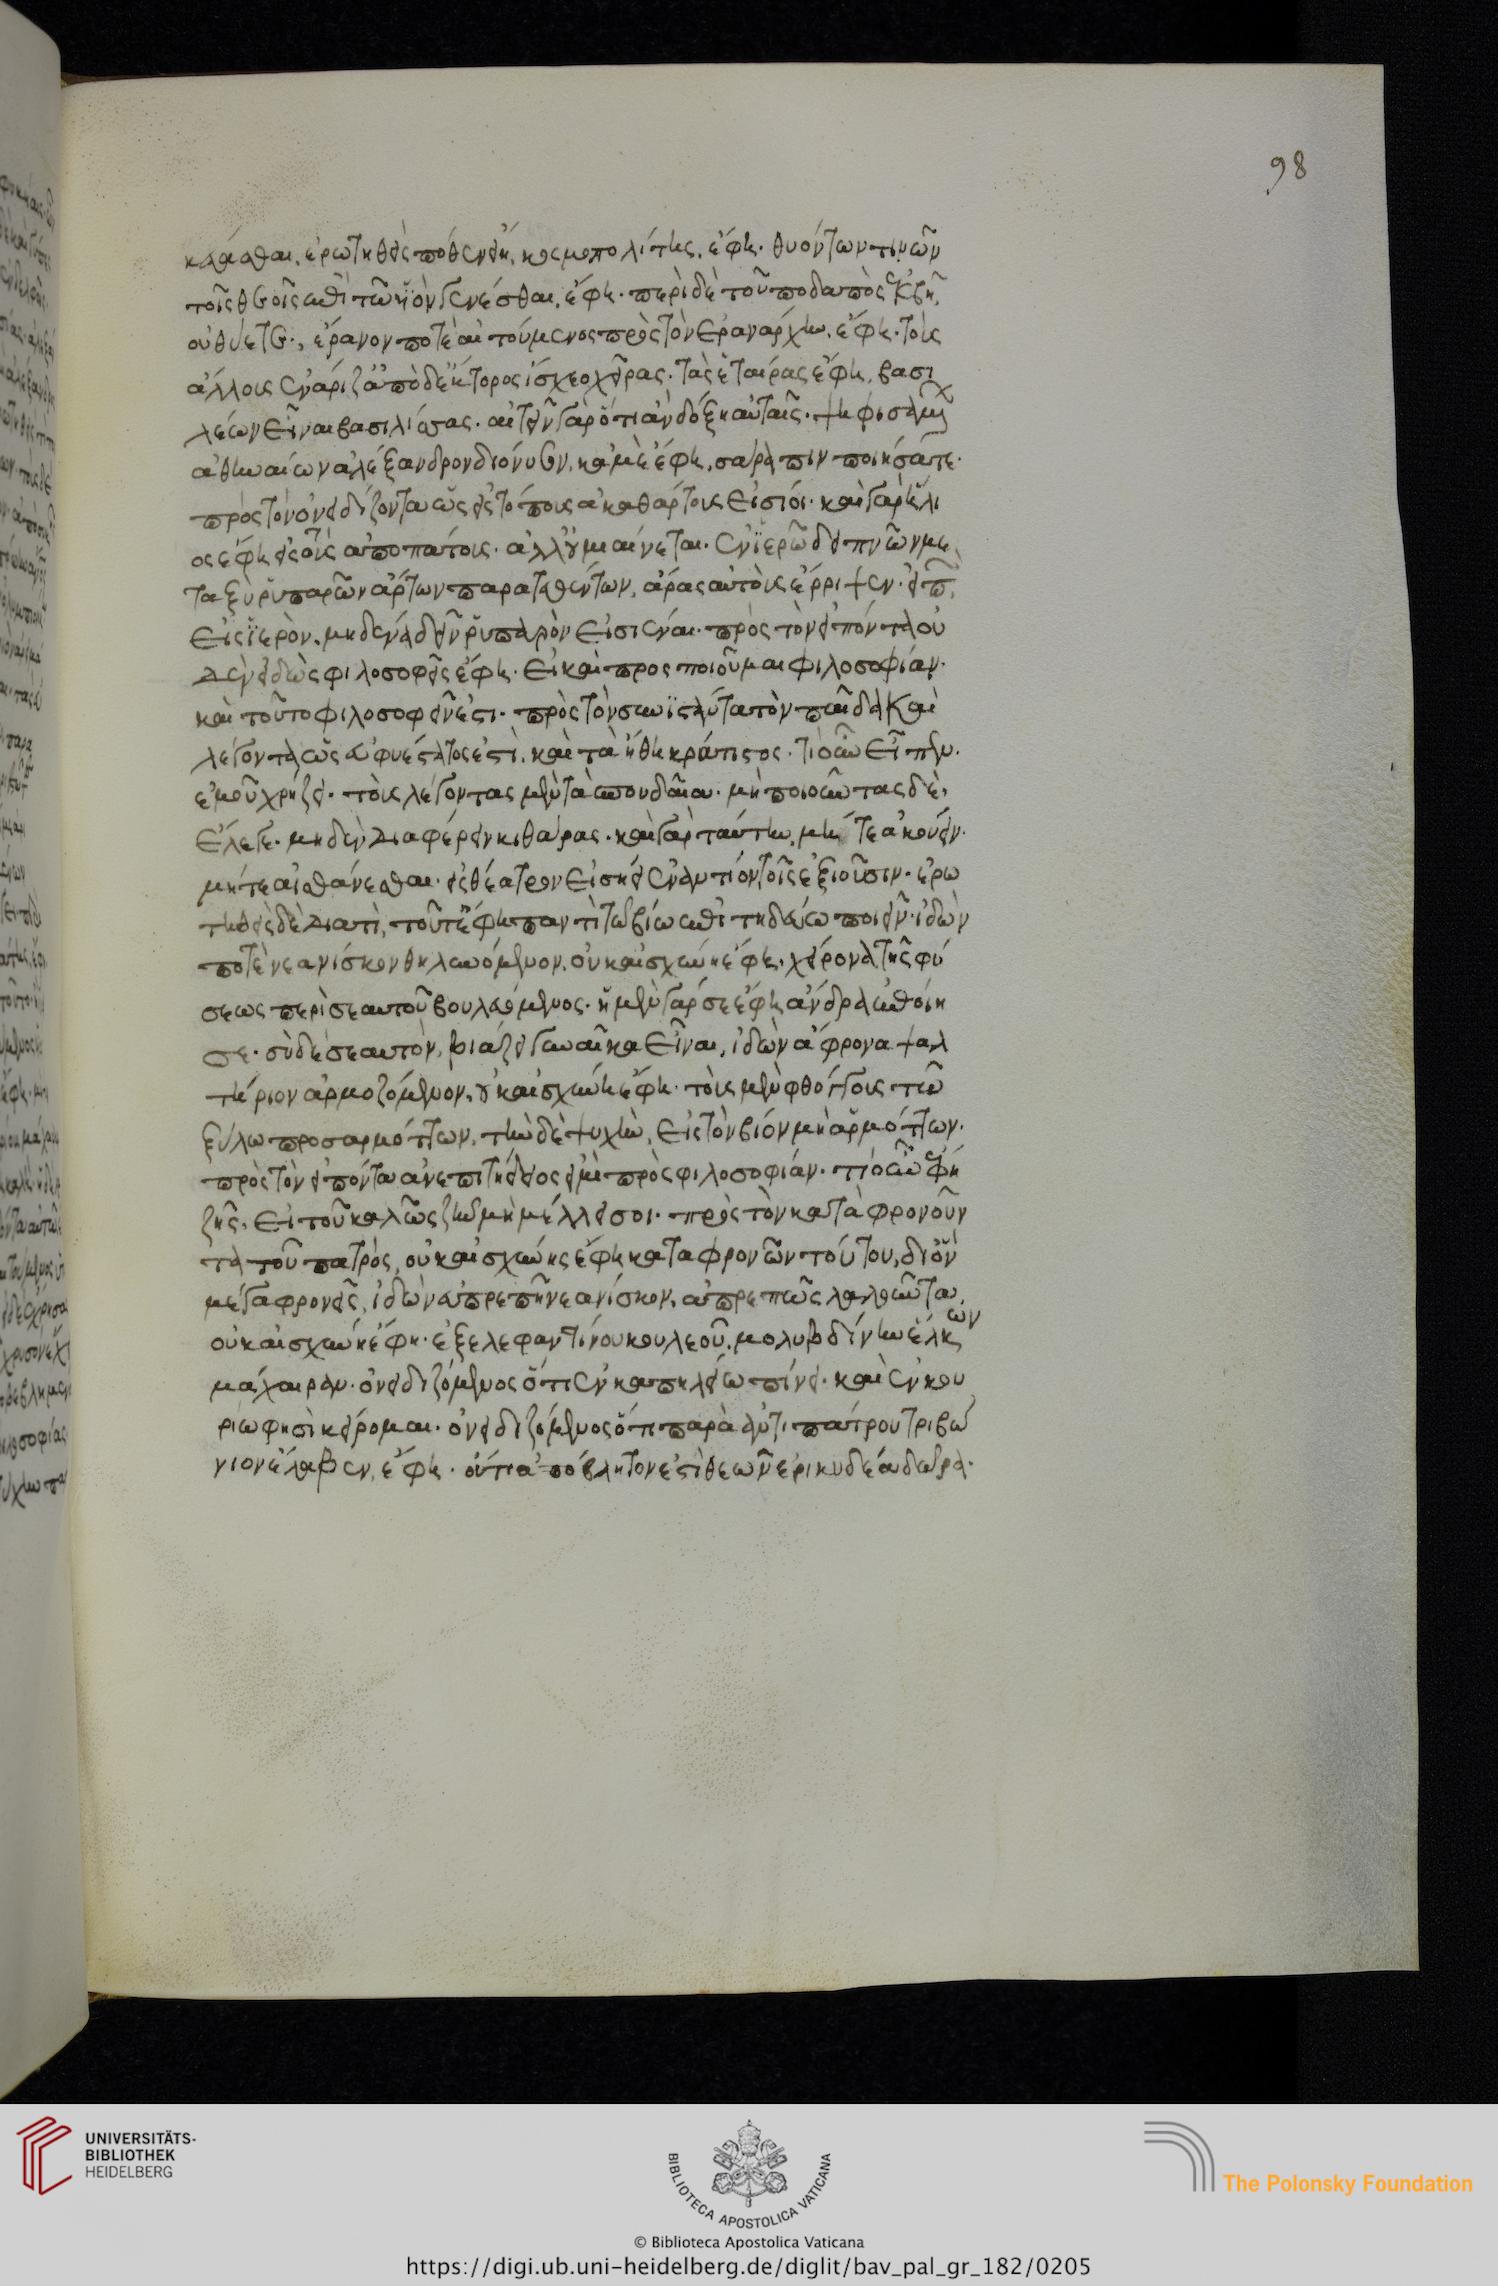 κευάσθαι. ἐρωτηθεὶς πόθεν εἴη, κοσμοπολίτης, ἔφη. θυόντων τινῶν
τοῖς θεοῖς ἐπὶ τῶ ϋἱὸν γενέσθαι, ἔφη. περὶ δὲ τοῦ ποδαπὸς ἐκβῆ,
οὐ θύετε., ἔρανον ποτὲ αἰτούμενος πρὸς τὸν ἐρανάρχην, ἔφη. τοὺς
ἄλλους ἐνάριζ' ἀπὸ δ' ἕκτορος ἴσχεο χεῖρας. τὰς ἑταίρας ἔφη, βασι
λέων εἶναι βασιλίσσας. αἰτεῖν γὰρ ὅτι ἂν δόξη αὐταῖς. ψηφισαμένων
ἀθηναίων ἀλέξανδρον διόνυσον, κἀμὲ ἔφη, σάραπιν ποιήσατε.
πρὸς τὸν ὀνειδίζοντα ὡς εἰς τόπους ἀκαθάρτους εἰσίοι. καὶ γὰρ ἥλι
ος ἔφη εἰς τοὺς ἀποπάτους. ἀλλ' οὐ μιαίνεται. ἐν ἱερῶ δειπνῶν με
ταξὺ ῥυπαρῶν ἄρτων παρατεθέντων, ἄρας αὐτοὺς ἔρριψεν. εἰπ,
εἰς ἱερὸν, μηδενὰ δεῖν ῥυπαρὸν εἰσιέναι. πρὸς τὸν εἰπόντα οὐ
δὲν εἰδὼς φιλοσοφεῖς ἔφη. εἰ καὶ προσποιοῦμαι φιλοσοφίαν.
καὶ τοῦτο φιλοσοφεῖν ἐστι. πρὸς τὸν συνϊστάντα τὸν παῖδα καὶ
λέγοντα ὡς εὐφυέστατος ἐστὶ, καὶ τὰ ἤθη κράτιστος. τί οὖν εἶπεν.
ἐμοῦ χρήζει. τοὺς λέγοντας μὲν τὰ σπουδαῖα. μὴ ποιοῦντας δὲ,
ἔλεγε. μηδὲν διαφέρειν κιθάρας. καὶ γὰρ ταύτην, μήτε ἀκούειν.
μήτε αἰσθάνεσθαι. εἰς θέατρον εἰσήει ἐναντίον τοῖς ἐξιοῦσιν. ἐρω
τηθεὶς δὲ διατὶ, τοῦτ' ἔφη παντὶ τῶ βίω ἐπιτηδεύω ποιεῖν. ἰδὼν
ποτὲ νεανίσκον θηλυνόμενον. οὐκ αἰσχύνη ἔφη. χείρονα τῆς φύ
σεως περὶ σεαυτοῦ βουλευόμενος. ἡ μὲν γάρ σε ἔφη ἄνδρα ἐποίη
σε. σὺ δὲ σεαυτὸν, βιάζει γυναῖκα εἶναι. ἰδὼν ἄφρονα ψαλ
τήριον ἁρμοζόμενον, οὐκ αἰσχύνη ἔφη. τοὺς μὲν φθόγγους τῶ
ξύλω προσαρμόττων, τὴν δὲ ψυχὴν, εἰς τὸν βίον μὴ ἁρμόττων.
πρὸς τὸν εἰπόντα ἀνεπιτήδειος εἰμὶ πρὸς φιλοσοφίαν. τί οὖν ἔφη
ζῆς, εἰ τοῦ καλῶς ζῆν μὴ μέλλει σοι. πρὸς τὸν καταφρονοῦν
τα τοῦ πατρὸς, οὐκ αἰσχύνης ἔφη καταφρονῶν τούτου, δι' ὃν
μέγα φρονεῖς. ἰδὼν εὐπρεπῆ νεανίσκον, ἀπρεπῶς λαλοῦντα,
οὐκ αἰσχύνη ἔφη. ἐξ ἐλεφαντίνου κουλεοῦ, μολυβδίνην ἕλκων
μάχαιραν. ὀνειδιζόμενος ὅτι ἐν καπηλείω πίνει. καὶ ἐν κου
ρίω φησὶ κείρομαι. ὀνειδιζόμενος ὅτι παρὰ ἀντιπάτρου τριβώ
νιον ἔλαβεν, ἔφη. οὔτι ἀπόβλητον ἐστὶ θεῶν ἐρικυδέα δῶρα.
98
UNIVERSITÄTS-
BIBLIOTHEK
HEIDELBERG
BIBLIOTECA APOSTOLICA VATICANA
The Polonsky Foundation
© Biblioteca Apostolica Vaticana
https://digi.ub.uni-heidelberg.de/diglit/bav_pal_gr_182/0205